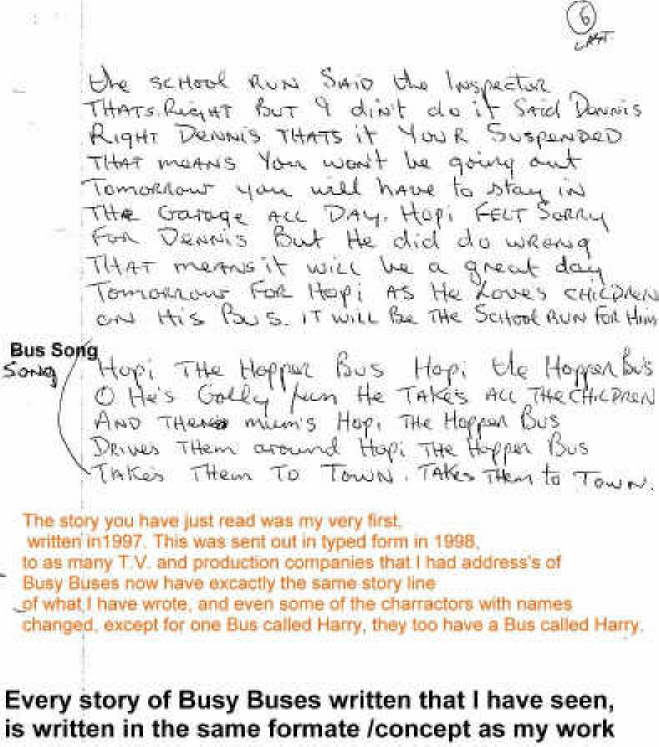 6
LAST.
the SCHOOL RUN SAID the INSPECTOR
THATS. RIGHT BUT I din't do it SAID DENNIS
RIGHT DENNIS THATS it YOUR SUSPENDED
THAT MEANS You WON'T be going out
Tomorrow you will have to stay IN
THE Garage ALL DAY. Hopi FELT SORRY
FOR DENNIS But He did do WRONG
THAT means it will be a great day
TOMORROW FOR Hopi AS He Loves CHILDREN
ON His BUS. IT WILL BE THE SCHOOL RUN FOR Him
Bus Song
SONG
Hopi THE Hopper Bus Hopi the Hopper Bus
O He's Golly fun He TAKES ALL THE CHILDREN
AND There mum's Hopi THE Hopper Bus
DRIVES THEM around Hopi THE Hopper Bus
TAKES THEM TO TOWN. TAKES THEM to TOWN.
The story you have just read was my very first,
written in1997. This was sent out in typed form in 1998,
to as many T.V. and production companies that I had address's of
Busy Buses now have excactly the same story line
of what I have wrote, and even some of the charractors with names
changed, except for one Bus called Harry, they too have a Bus called Harry.
Every story of Busy Buses written that I have seen,
is written in the same formate /concept as my work